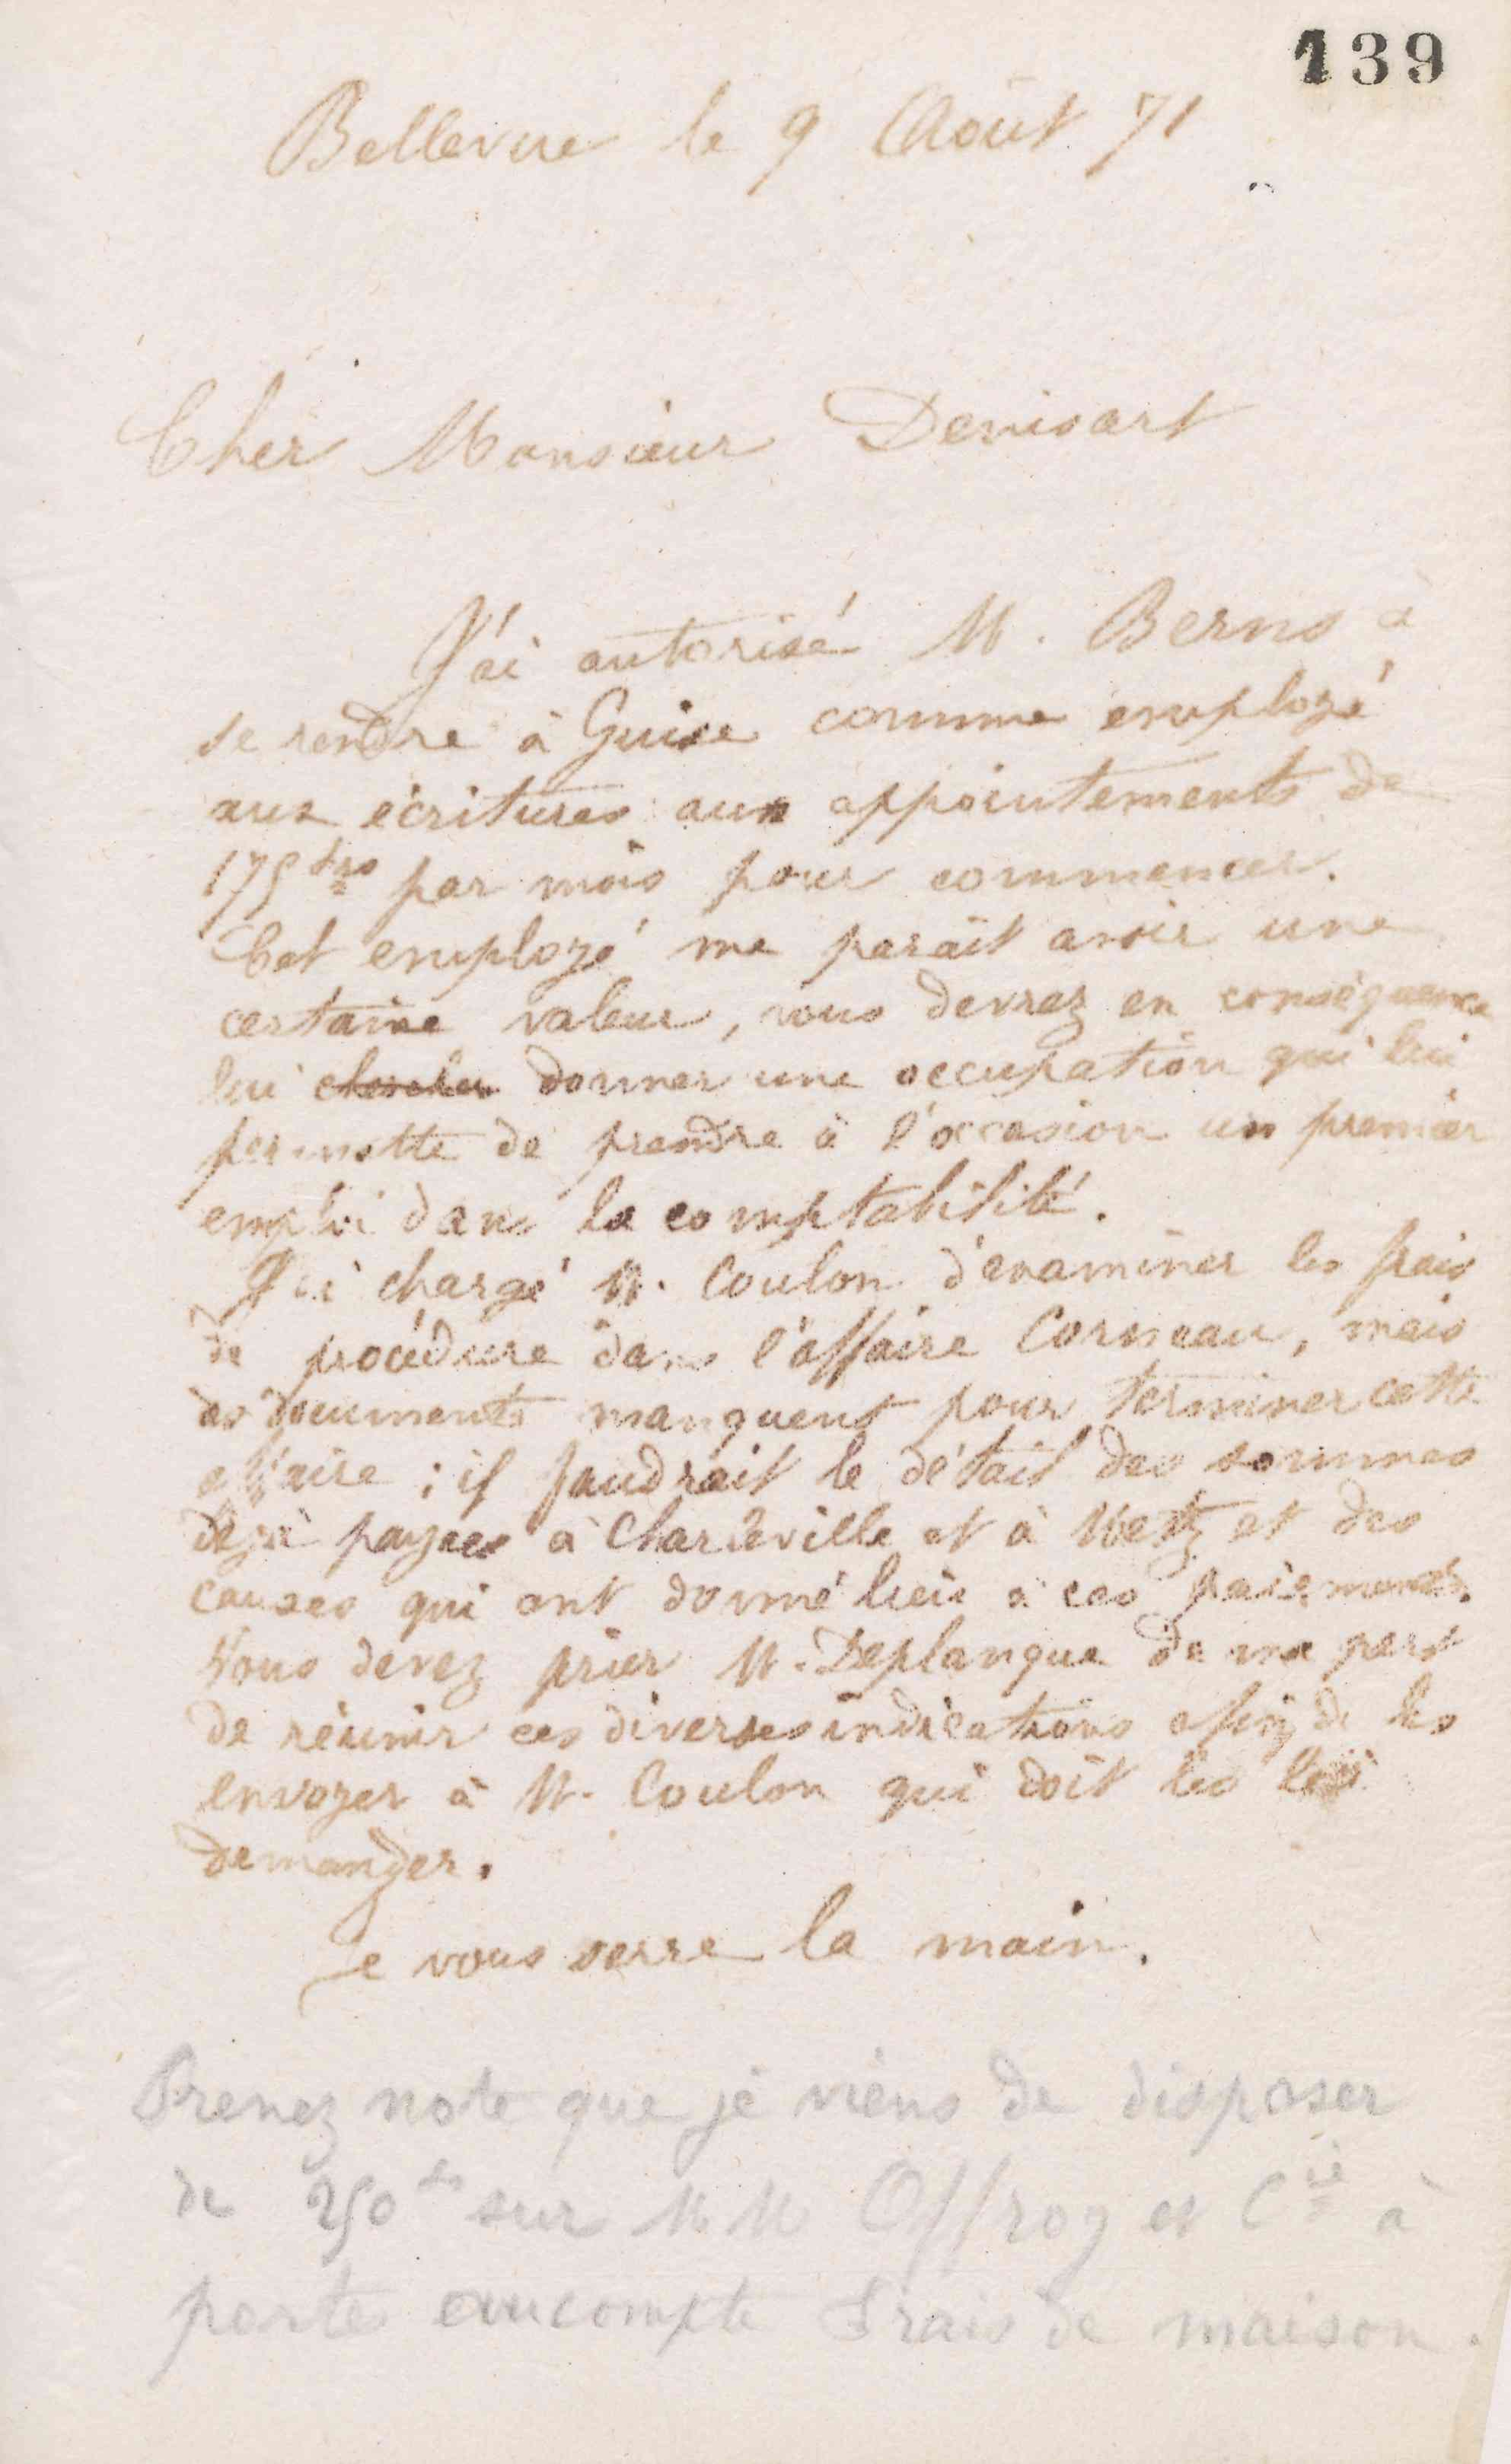 139
Bellevue le 9 Août 71
Cher Monsieur Denisart
J'ai autorisé M. Berns à
se rendre à Guise comme employé
aux écritures aux appointements de
175 frs par mois pour commencer.
Cet employé me paraît avoir une
certaine valeur, vous devrez en conséquence
lui chercher donner une occupation qui lui
permette de prendre à l'occasion un premier
emploi dans la comptabilité.
J'ai chargé M. Coulon d'examiner les frais
de procédure dans l'affaire Corneau, mais
des documents manquent pour terminer cette
affaire ; il faudrait le détail des sommes
déjà payées à Charleville et à Metz et des
causes qui ont donné lieu à ces paiements.
Vous devez prier M. Deplanque de ma part
de réunir ces diverses indications afin de les
envoyer à M. Coulon qui doit les lui
demander.
Je vous serre la main.
Prenez note que je viens de disposer
de 250 frs sur MM Offroy et Cie à
porter au compte frais de maison.